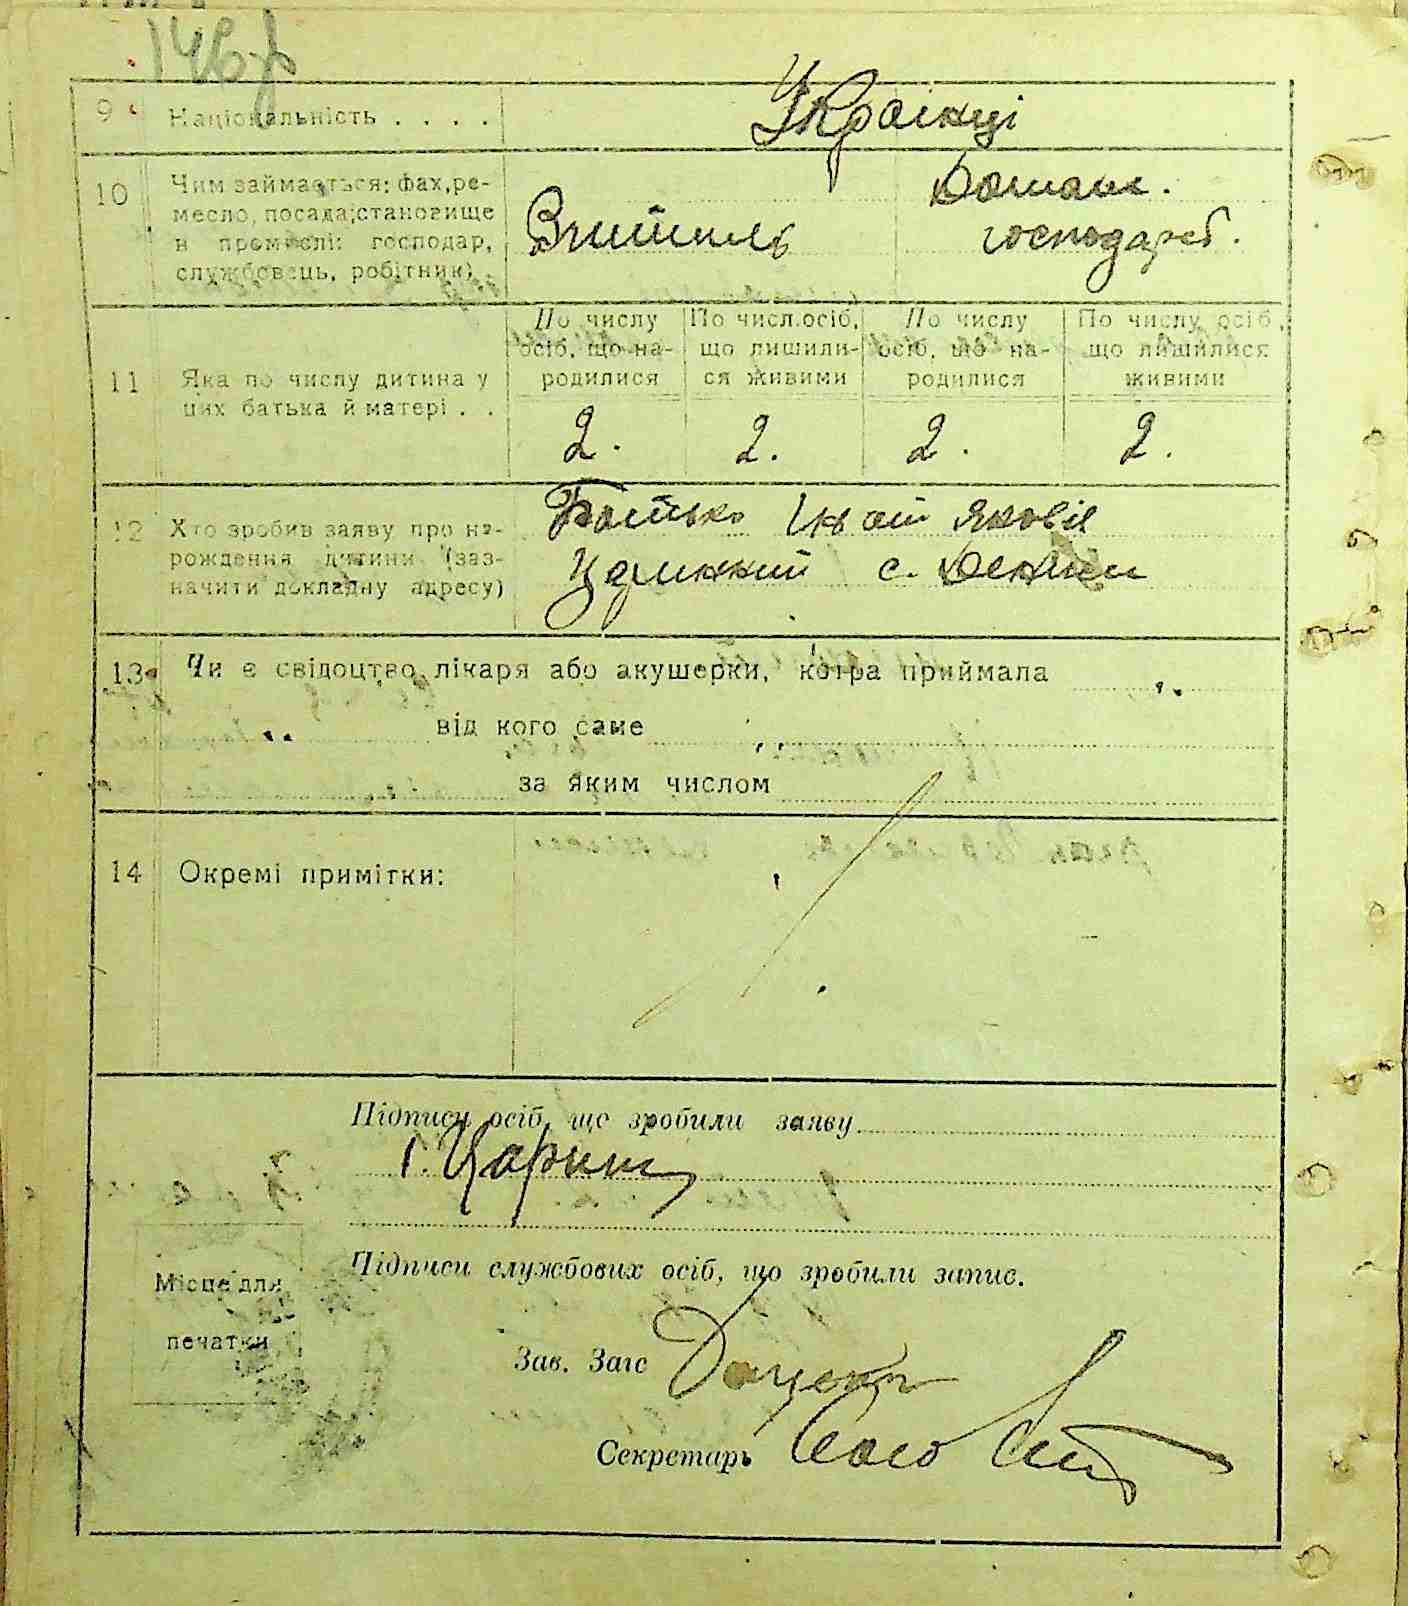 146
9 Національність . . . .
Українці
10 Чим займається: фах, ре-
месло, посада; становище
в промислі: господар,
службовець, робітник)
Вчитель
Домаш.
господарст.
11 Яка по числу дитина у
цих батька й матері . .
По числу
осіб, що на-
родилися
По числ. осіб,
що лишили-
ся живими
По числу
осіб, що на-
родилися
По числу осіб,
що лишилися
живими
2. 2. 2. 2.
12 Хто зробив заяву про на-
рождення дитини (заз-
начити докладну адресу)
Батько Гнат
с.
13 Чи є свідоцтво лікаря або акушерки, котра приймала
від кого саме
за яким числом
14 Окремі примітки:
Підписи осіб, що зробили заяву
Г. Царин
Підписи службових осіб, що зробили запис.
Місце для
печатки
Зав. Загс
Секретарь